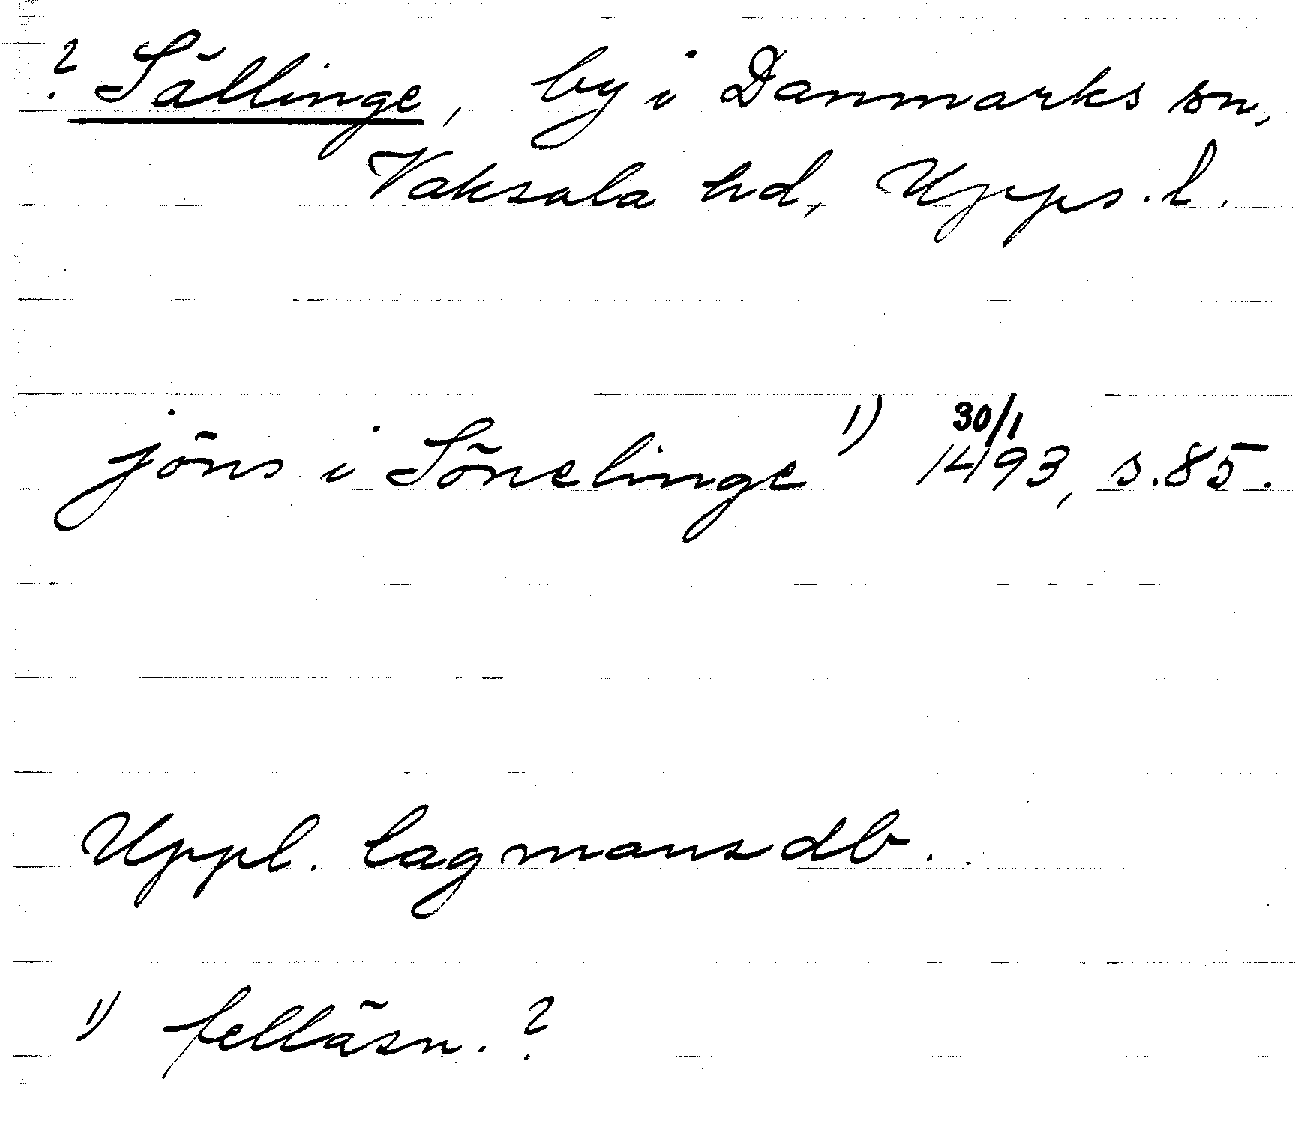 ? Sällinge, by i Danmarks sn,
Vaksala hd, Upps. l.
jöns i Sönelinge 1) 30/1 1493, s. 85.
Uppl. lagmansdb.
1) felläsn. ?